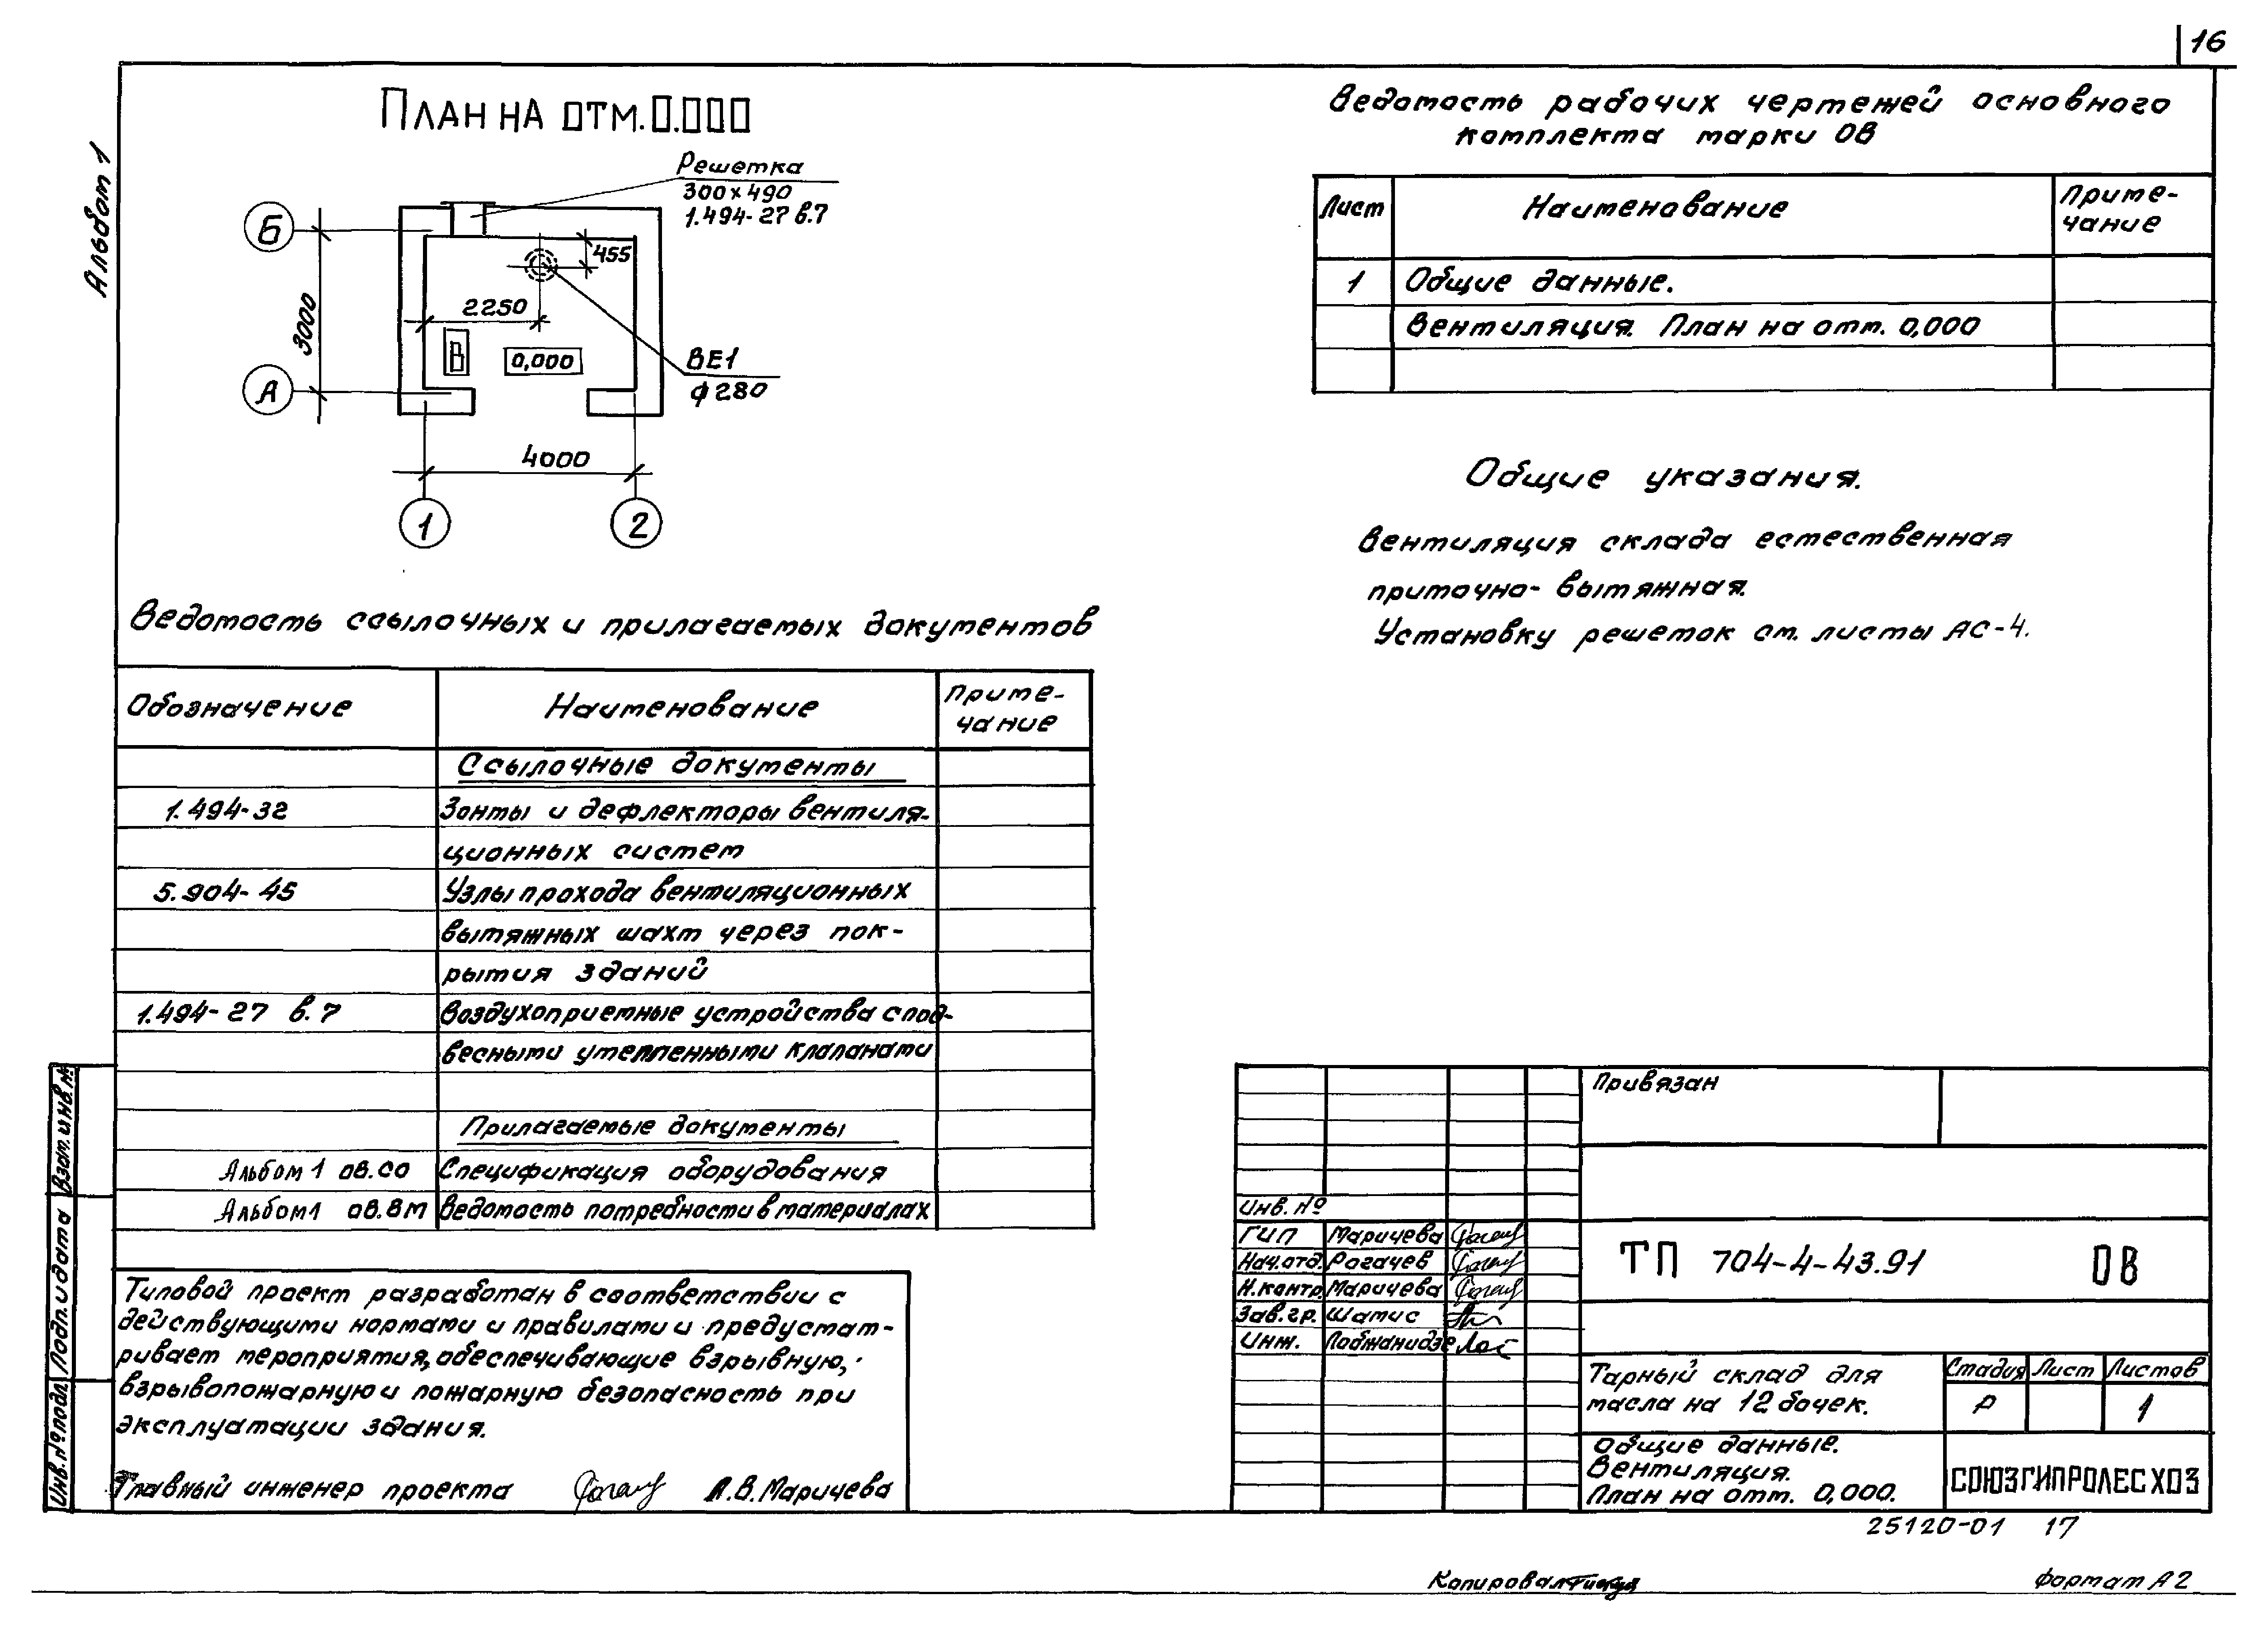 16
Альбом 1
План на отм. 0.000
Решетка
300×490
1.494-27 в.7
Б
455
3000
2250
В
0,000
ВЕ1
ф280
А
4000
1
2
Ведомость рабочих чертежей основного
комплекта марки ОВ
Лист
Наименование
Приме-
чание
1
Общие данные.
Вентиляция. План на отм. 0,000
Общие указания.
Вентиляция склада естественная
приточно-вытяжная.
Установку решеток см. листы АС-4.
Ведомость ссылочных и прилагаемых документов
Обозначение
Наименование
Приме-
чание
Ссылочные документы
1.494-32
Зонты и дефлекторы вентиля-
ционных систем
5.904-45
Узлы прохода вентиляционных
вытяжных шахт через пок-
рытия зданий
1.494-27 в.7
Воздухоприемные устройства с под-
весными утепленными клапанами
Прилагаемые документы
Альбом 1 ОВ.СО
Спецификация оборудования
Альбом 1 ОВ.ВМ
Ведомость потребности в материалах
Типовой проект разработан в соответствии с
действующими нормами и правилами и предусмат-
ривает мероприятия, обеспечивающие взрывную,
взрывопожарную и пожарную безопасность при
эксплуатации здания.
Главный инженер проекта
А.В. Маричева
Взам. инв. №
Подп. и дата
Инв. № подл.
Привязан
Инв. №
ГИП Маричева
Нач.отд. Рогачев
Н.контр. Маричева
Зав.гр. Шатис
Инж. Лобжанидзе
ТП 704-4-43.91 ОВ
Тарный склад для
масла на 12 бочек.
Стадия Лист Листов
Р 1
Общие данные.
Вентиляция.
План на отм. 0,000.
СОЮЗГИПРОЛЕСХОЗ
25120-01 17
Копировал
Формат А2